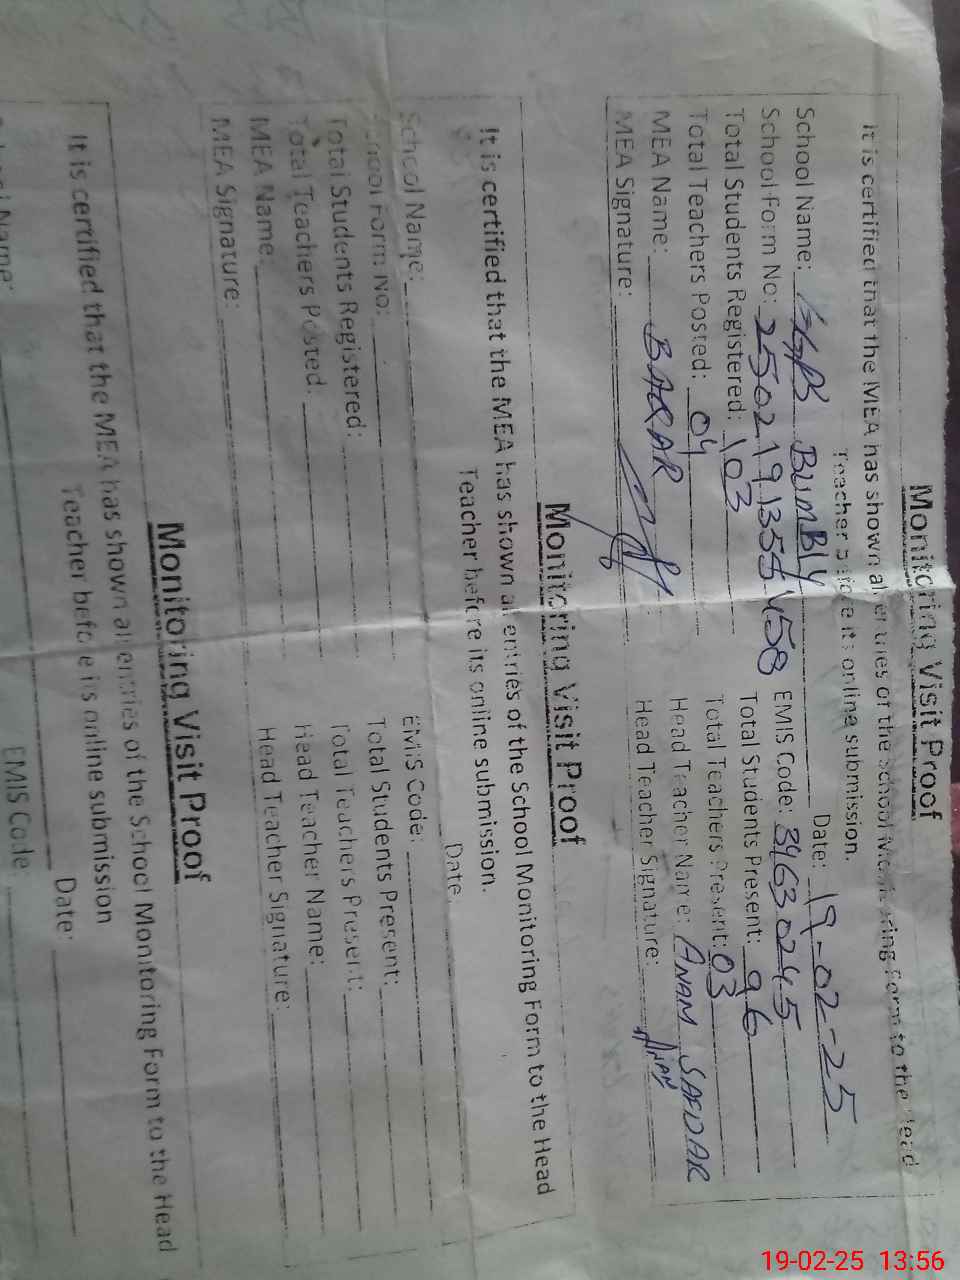 Monitoring Visit Proof
It is certified that the MEA has shown all entries of the School Monitoring Form to the Head
Teacher before its online submission.
Date: 19-02-25
School Name: BUMBLY
School Form No: EMIS Code: 34630245
Total Students Registered: 103 Total Students Present: 96
Total Teachers Posted: 04 Total Teachers Present: 03
MEA Name: BABAR Head Teacher Name: ANAM SAFDAR
MEA Signature: Head Teacher Signature: Anam
Monitoring Visit Proof
It is certified that the MEA has shown all entries of the School Monitoring Form to the Head
Teacher before its online submission.
Date
School Name:
School Form No: EMIS Code:
Total Students Registered: Total Students Present:
Total Teachers Posted: Total Teachers Present:
MEA Name: Head Teacher Name:
MEA Signature: Head Teacher Signature:
Monitoring Visit Proof
It is certified that the MEA has shown all entries of the School Monitoring Form to the Head
Teacher before its online submission
Date:
Name:
EMIS Code
19-02-25 13:56